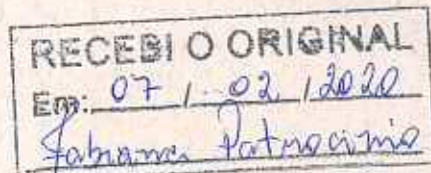 RECEBI O ORIGINAL
Em: 07 / 02 / 2020
Fabiana Patrocinio